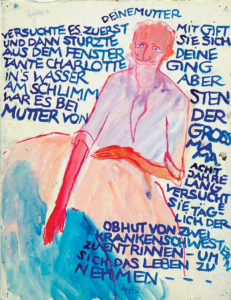 DEINE MUTTER
VERSUCHTE ES ZUERST MIT GIFT
UND DANN STÜRZTE SIE SICH
AUS DEM FENSTER DEINE
TANTE CHARLOTTE GING
INS WASSER ABER
AM SCHLIMMSTEN
WAR ES BEI DER
MUTTER VON GROSS
MAMA
ACHT
JAHRE
LANG
VERSUCHT
SIE TÄG-
LICH DER
OBHUT VON ZWEI
KRANKENSCHWESTERN
ZU ENTRINNEN – UM
SICH DAS LEBEN ZU
NEHMEN